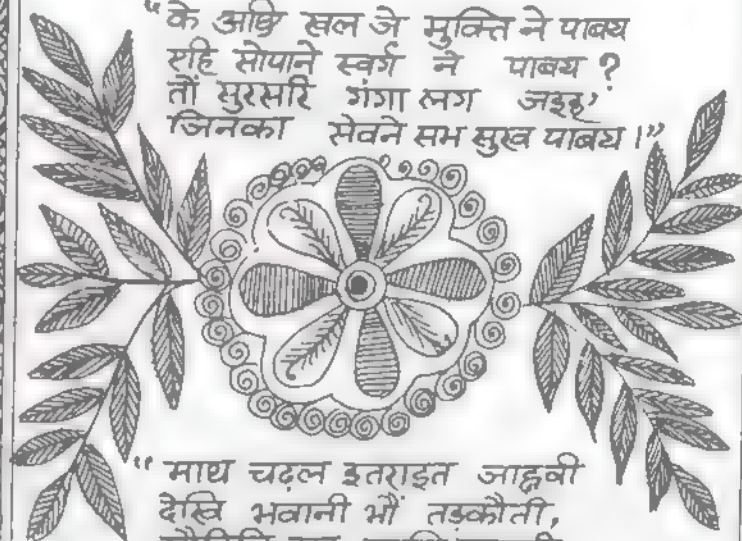 “के अछि खल जे मुक्ति ने पाबय
एहि सोपाने स्वर्ग ने पाबय ?
तों सुरसरि गंगा लग जइह’
जिनका सेवने सभ सुख पाबय ।”
“ माथ चढ़ल इतराइत जाह्नवी
देखि भवानी भौं तड़कौती,